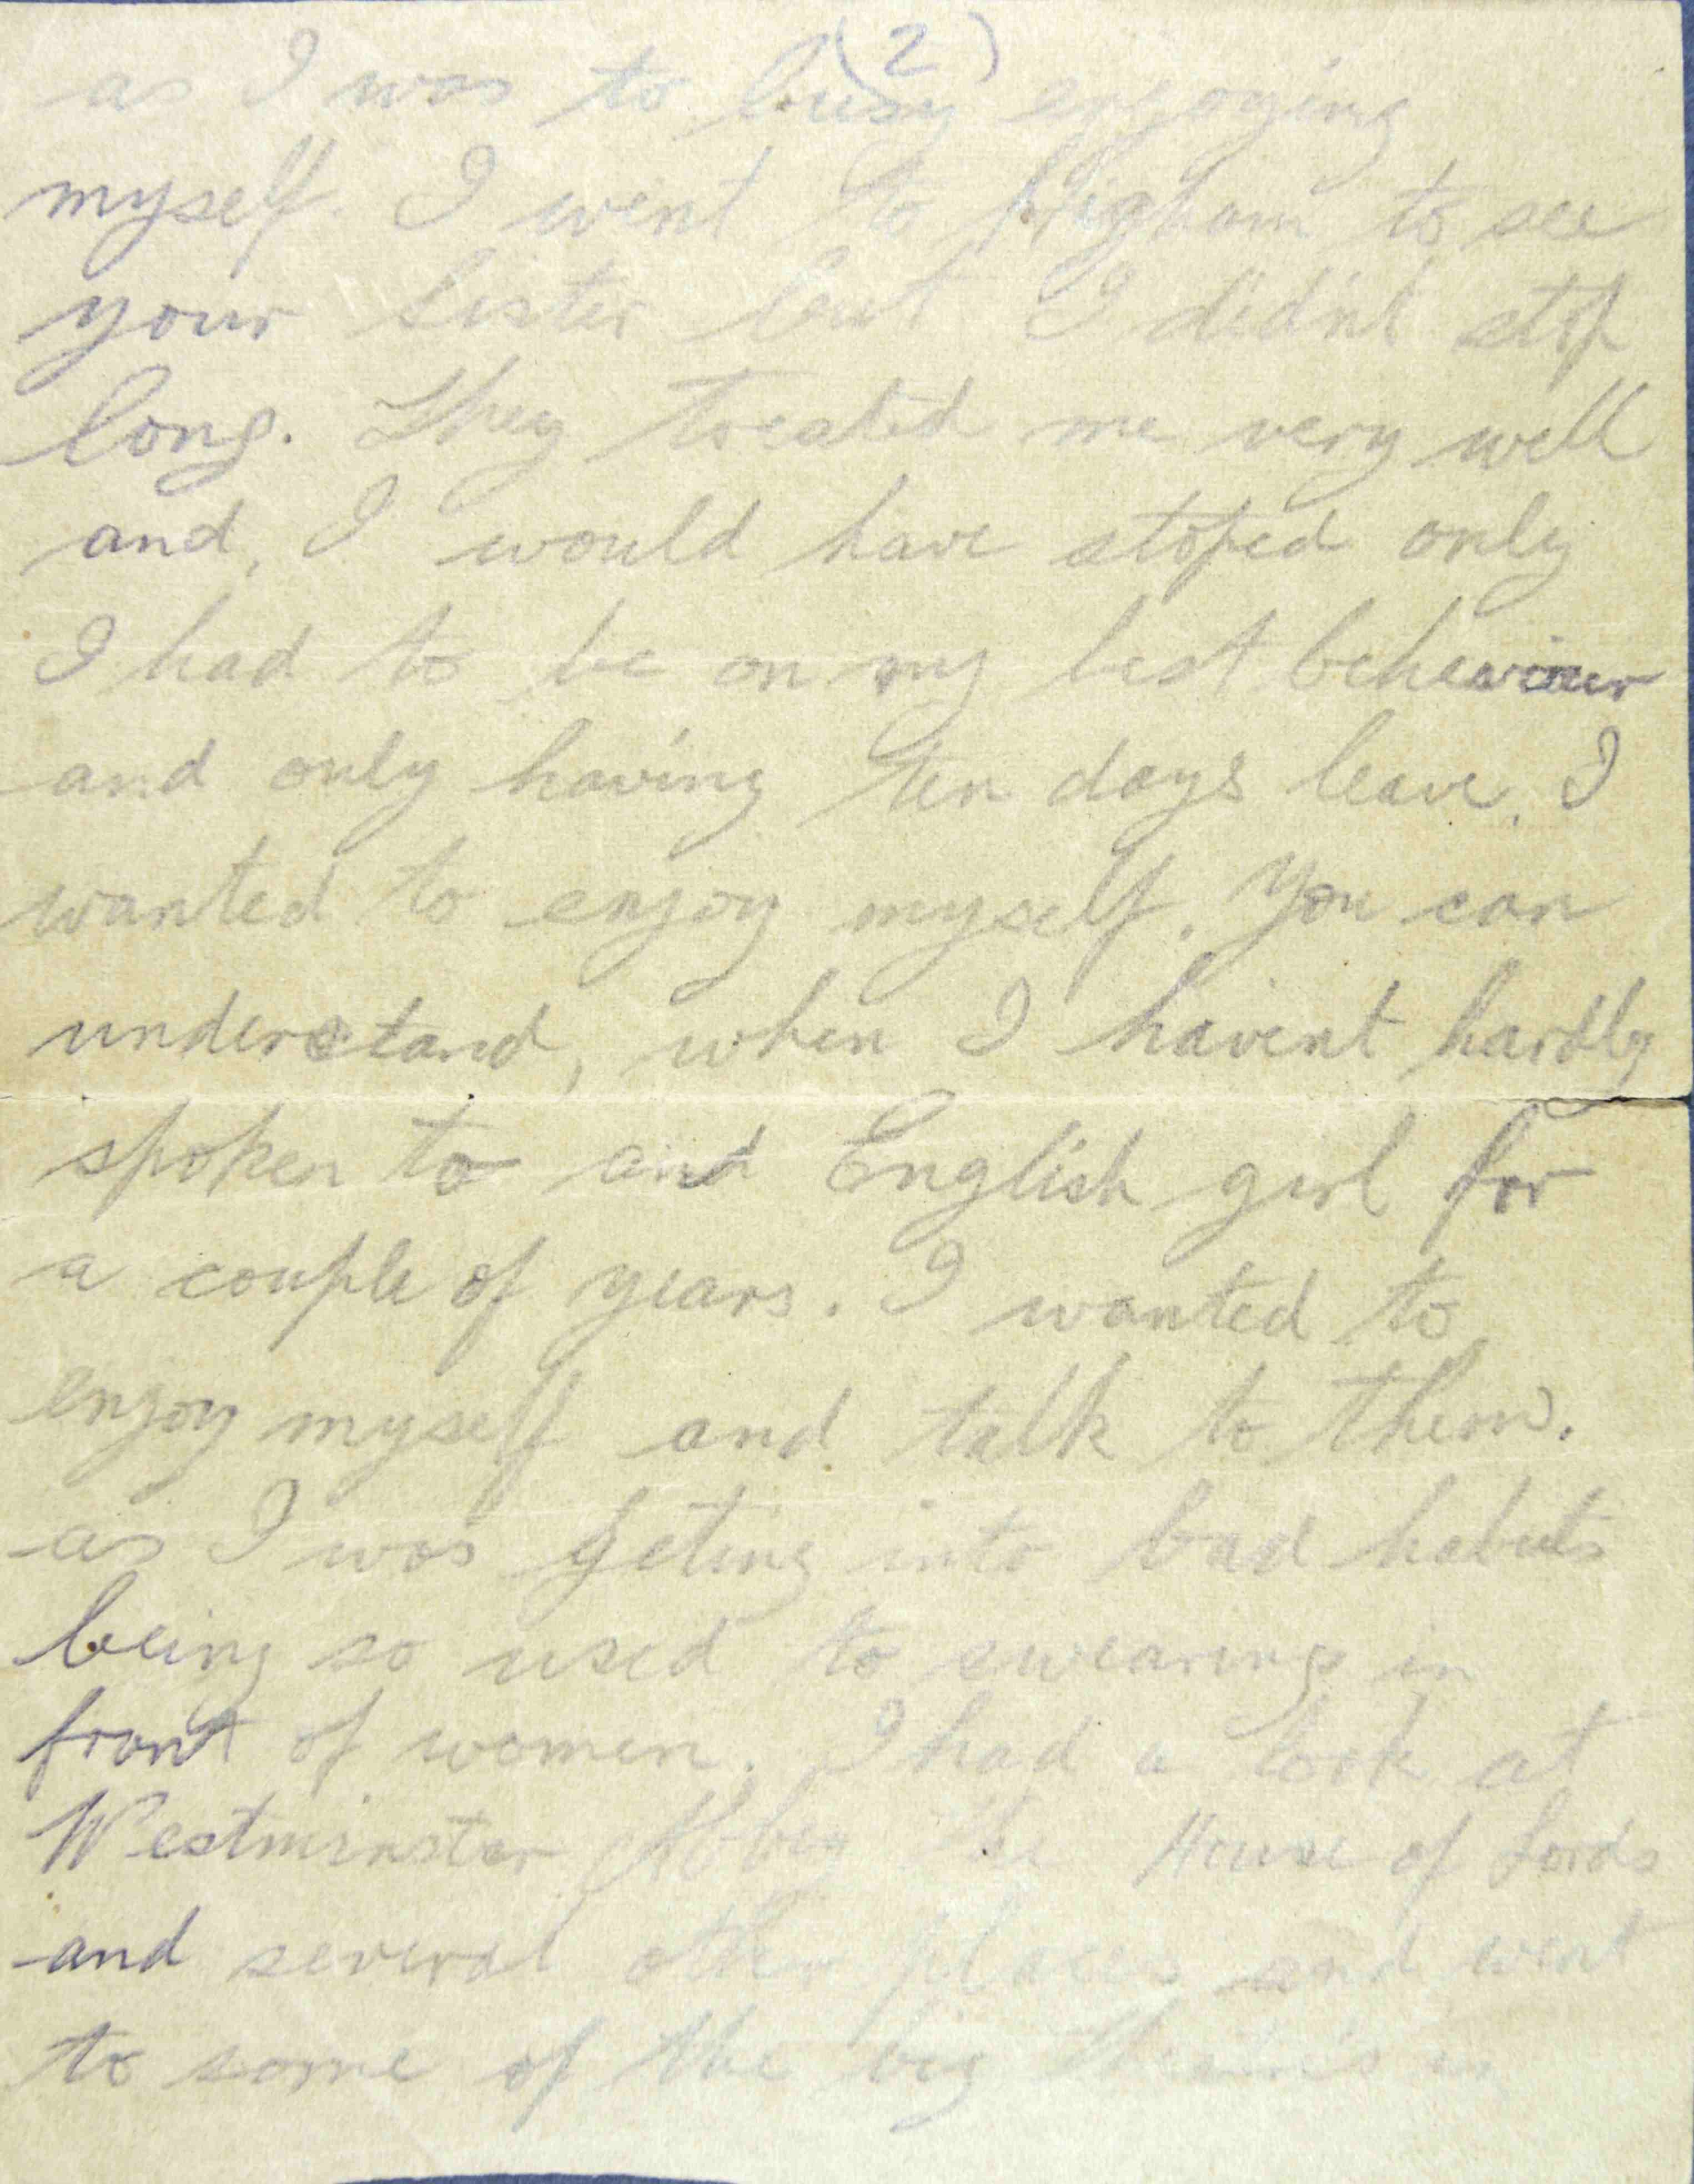 (2)
as I was to busy enjoying
myself. I went to to see
your sister but I didn't stop
long. They treated me very well
and, I would have stoped only
I had to be on my best behaviour
and only having ten days leave, I
wanted to enjoy myself. You can
understand, when I havent hardly
spoken to and English girl for
a couple of years. I wanted to
enjoy myself and talk to them.
as I was geting into bad habits
being so used to swearing in
front of women. I had a look at
Westminster Abbey the House of Lords
and several other places and went
to some of the big in